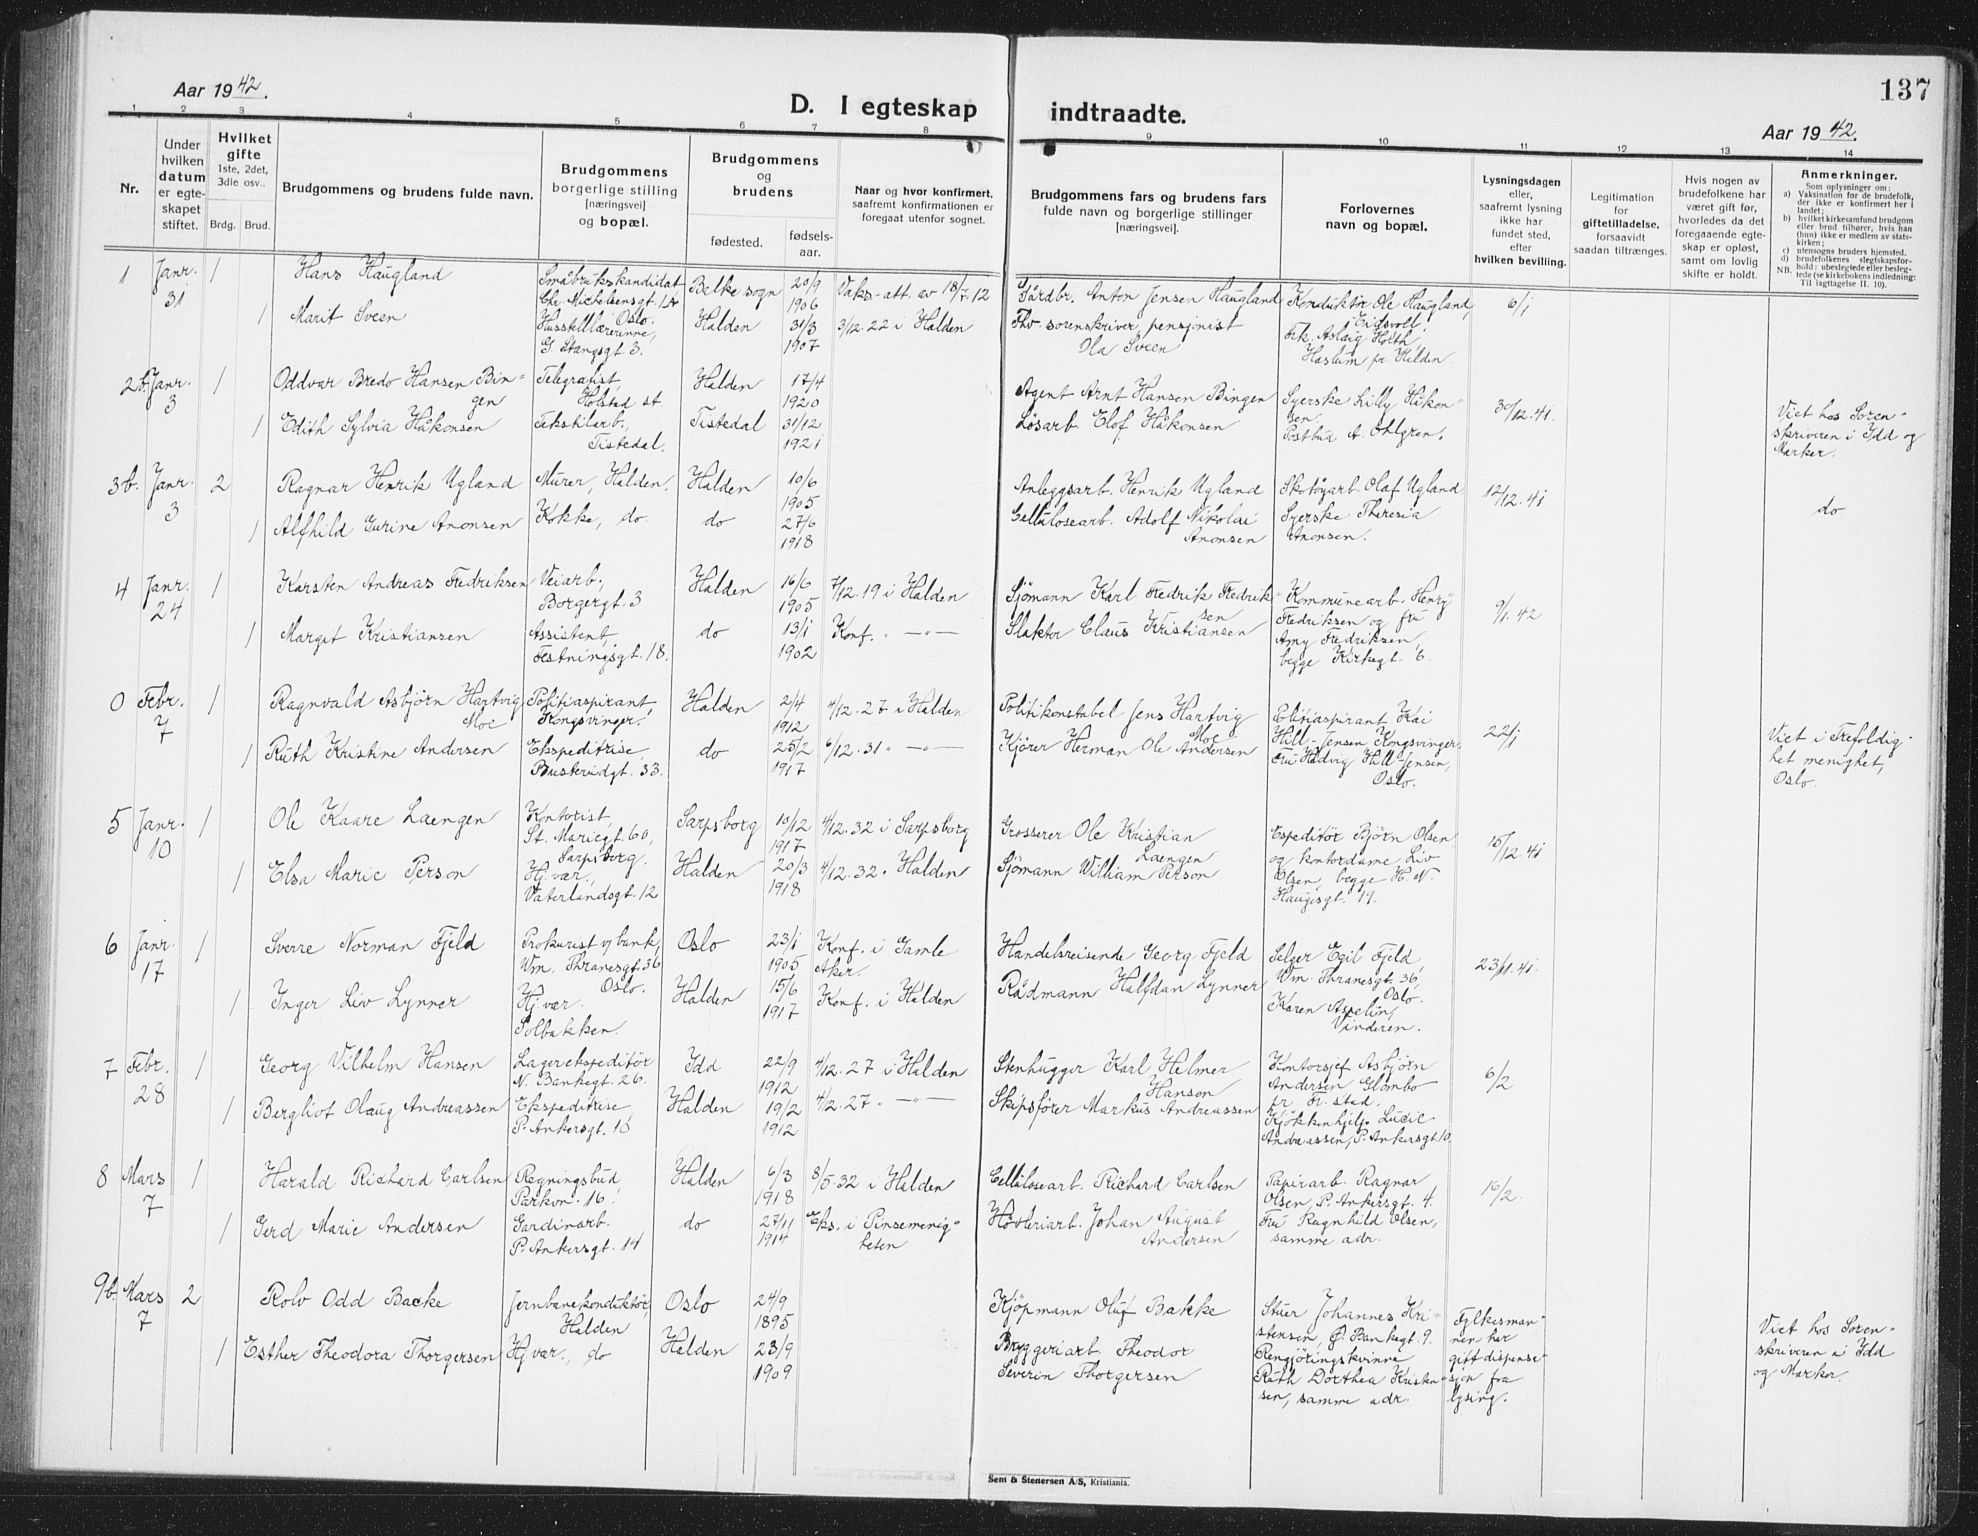 137
Aar 1942.
D. I egteskap indtraadte.
Aar 1942.
1 2 3 4 5 6 7 8 9 10 11 12 13 14
Nr.
Under hvilken datum er egteskapet stiftet.
Hvilket gifte
1ste, 2det, 3die osv..
Brdg. Brud.
Brudgommens og brudens fulde navn.
Brudgommens borgerlige stilling [næringsvei] og bopæl.
Brudgommens og brudens
fødested.
fødselsaar.
Naar og hvor konfirmert, saafremt konfirmationen er foregaat utenfor sognet.
Brudgommens fars og brudens fars fulde navn og borgerlige stillinger [næringsvei].
Forlovernes navn og bopæl.
Lysningsdagen eller, saafremt lysning ikke har fundet sted, efter hvilken bevilling.
Legitimation for giftetilladelse, forsaavidt saadan tiltrænges.
Hvis nogen av brudefolkene har været gift før, hvorledes da det foregaaende egteskap er opløst, samt om lovlig skifte er holdt.
Anmerkninger.
Som oplysninger om:
a) Vaksination for de brudefolk, der ikke er konfirmert her i landet;
b) hvilket kirkesamfund brudgom eller brud tilhører, hvis han (hun) ikke er medlem av statskirken;
c) utensogns bruders hjemsted.
d) brudefolkenes slegtskapsforhold: ubeslegtede eller beslegtede (se kirkebokens indledning:
NB. Til iagttagelse II. 10).
1 Janr. 31 1 Hans Haugland Småbrukskandidat Chr. Michelsensgt. 1A Oslo. Belke sogn 20/9 1906 Vaks-att. av 18/7.12 Gårdbr. Anton Jensen Haugland Konduktør Ole Haugland, Eidsvoll. 6/1
1 Marit Sveen Husstellærerinne, G. Stangsgt 3. Halden 31/3 1907 3/12.22 i Halden Fhv. sorenskriver, pensjonist Ola Sveen Frk. Aslaug Holth, Haslum pr. Halden.
2b. Janr. 3 1 Oddvar Bredo Hansen Bingen Telegrafist, Holstad st. Halden 17/4 1920 Agent Arnt Hansen Bingen Syerske Lilly Håkonsen 30/12.41. Viet hos Sorenskriveren i Idd og Marker.
1 Edith Sylvia Håkonsen Tekstilarb., Tistedal. Tistedal 31/12 1921 Løsarb. Elof Håkonsen Postbud A. Ohlgren.
3b. Janr. 3 2 Ragnar Henrik Ugland Murer, Halden. Halden 10/6 1905 Anleggsarb. Henrik Ugland Skotøyarb. Olaf Ugland 12/12.41 do
1 Alfhild Gurine Anonsen Kokke, do. do 27/6 1918 Cellulosearb. Adolf Nikolai Anonsen Syerske Theresia Anonsen.
4 Janr. 24 1 Karsten Andreas Fredriksen Veiarb., Borgergt. 3 Halden 16/6 1905 7/12.19 i Halden Sjømann Karl Fredrik Fredriksen Kommunearb. Henry Fredriksen og fru Amy Fredriksen, begge Kirkegt. 6. 9/1.42
1 Margit Kristiansen Assistent, Festningsgt. 18. do 13/1 1902 Konf. —"— Slaktor Claus Kristiansen
0 Febr. 7 1 Ragnvald Asbjørn Hartvig Moe Politiaspirant, Kongsvinger. Halden 2/4 1912 4/12.27 i Halden Politikonstabel Jens Hartvig Moe Politiaspirant Kai Hill-Jensen, Kongsvinger, 22/1 Viet i Trefoldighet menighet, Oslo.
1 Ruth Kristine Andersen Ekspeditrise, Busterudgt. 33. do 25/2 1917 6/12.31 " —"— Kjører Herman Ole Andersen Fru Hedvig Hill-Jensen, Oslo.
5 Janr. 10 1 Ole Kaare Laengen Kontorist, St. Mariegt. 60, Sarpsborg. Sarpsborg 10/12 1917 4/12.32 i Sarpsborg Grosserer Ole Kristian Laengen Espeditør Bjørn Olsen og kontordame Liv Olsen, begge H. N. Haugesgt. 19. 15/12.41
1 Elsa Marie Person Hj.vær., Vaterlandsgt. 12 Halden 20/3 1918 4/12.32. Halden Sjømann William Person
6 Janr. 17 1 Sverre Norman Fjeld Prokurist v/ bank, Wm. Thranesgt. 36 Oslo. Oslo 23/1 1905 Konf. i Gamle Aker. Handelsreisende Georg Fjeld Selger Egil Fjeld, Wm. Thranesgt. 36, Oslo. 23/11.41.
1 Inger Liv Lynner Hj.vær. Solbakken. Halden 15/6 1917 Konf. i Halden Rådmann Halfdan Lynner Karen Aspelin, Vinderen.
7 Febr. 28 1 Georg Vilhelm Hansen Lagerekspeditør N. Bankegt. 26. Idd 22/9 1912 4/12.27 i Halden Stenhugger Karl Helmer Hanson Kontorsjef Asbjørn Andersen Glombo pr. Fr.stad. 6/2
1 Bergliot Olaug Andreassen Ekspeditrise, P. Ankersgt. 10 Halden 19/2 1912 4/12.27 " —"— Skipsfører Markus Andreassen Kjøkkenhjelp Lucie Andreassen, P. Ankersgt. 10.
8 Mars 7 1 Harald Richard Carlsen Regningsbud Parkvn. 16. Halden 6/3 1918 8/5.32 i Halden Cellulosearb. Richard Carlsen Papirarb. Ragnar Olsen, P. Ankersgt. 4. 16/2.
1 Gerd Marie Andersen Gardinarb. P. Ankersgt. 14 do 27/11 1914 Eks. i Pinsemenigheten Høvleriarb. Johan August Andersen Fru Ragnhild Olsen, samme adr.
9b. Mars 7 2 Rolv Odd Backe Jernbanekonduktør, Halden Oslo 24/9 1895 Kjøpmann Oluf Bakke Stuer Johannes Kristensen, Ø. Bankegt. 9. Fylkesmannen har gift dispensasjon fra lysing. Viet hos Sorenskriveren i Idd og Marker.
1 Esther Theodora Thorgersen Hj.vær., do Halden 23/9 1909 Bryggeriarb. Theodor Severin Thorgersen Rengjøringskvinne Ruth Dorthea Kristensen, samme adr.
Sem & Stenersen A/S, Kristiania.